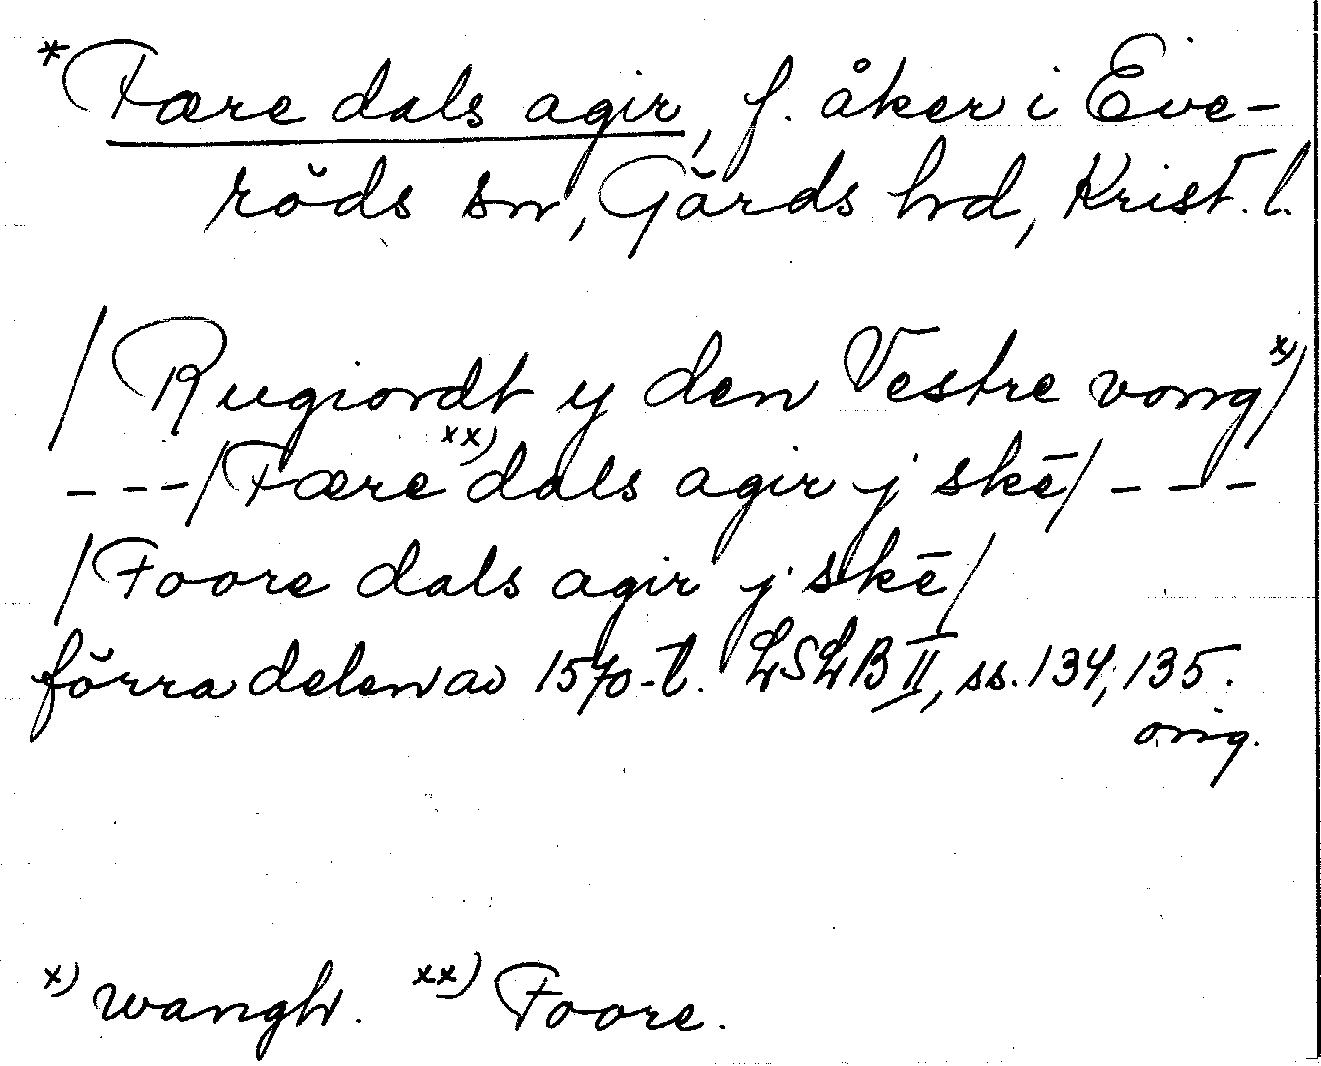 *Fære dals agir, f. åker i Eve-
röds sn, Gärds hd, Krist. l.
/Rugiordt y den Vestre vong x)/
---/Fære xx) dals agir j skē/---
/Foore dals agir j skē/
förra delen av 1570-t. LSLB II, ss. 134, 135.
orig.
x) wangh. xx) Foore.